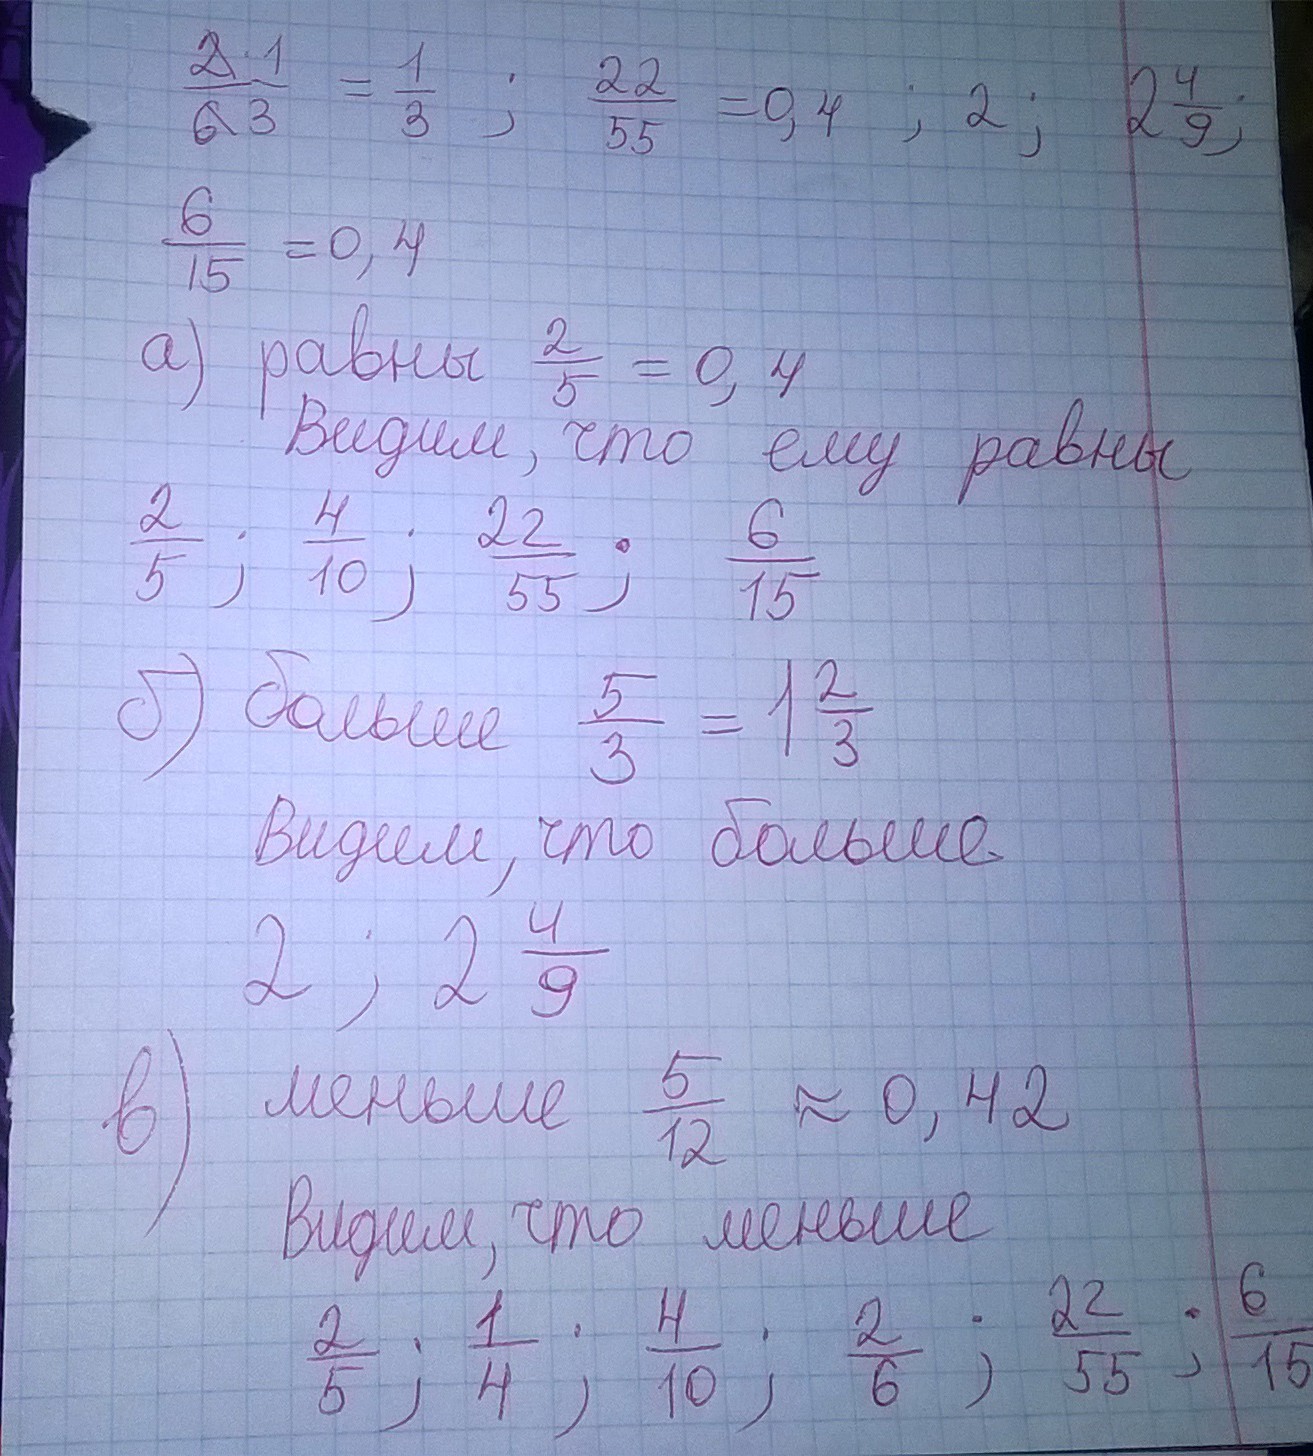 2·1/6 3 = 1/3 ; 22/55 = 0,4 ; 2 ; 2 4/9 ;
6/15 = 0,4
а) равны 2/5 = 0,4
Видим, что ему равны
2/5 ; 4/10 ; 22/55 ; 6/15
б) больше 5/3 = 1 2/3
Видим, что больше
2 ; 2 4/9
в) меньше 5/12 ≈ 0,42
Видим, что меньше
2/5 ; 1/4 ; 4/10 ; 2/6 ; 22/55 ; 6/15